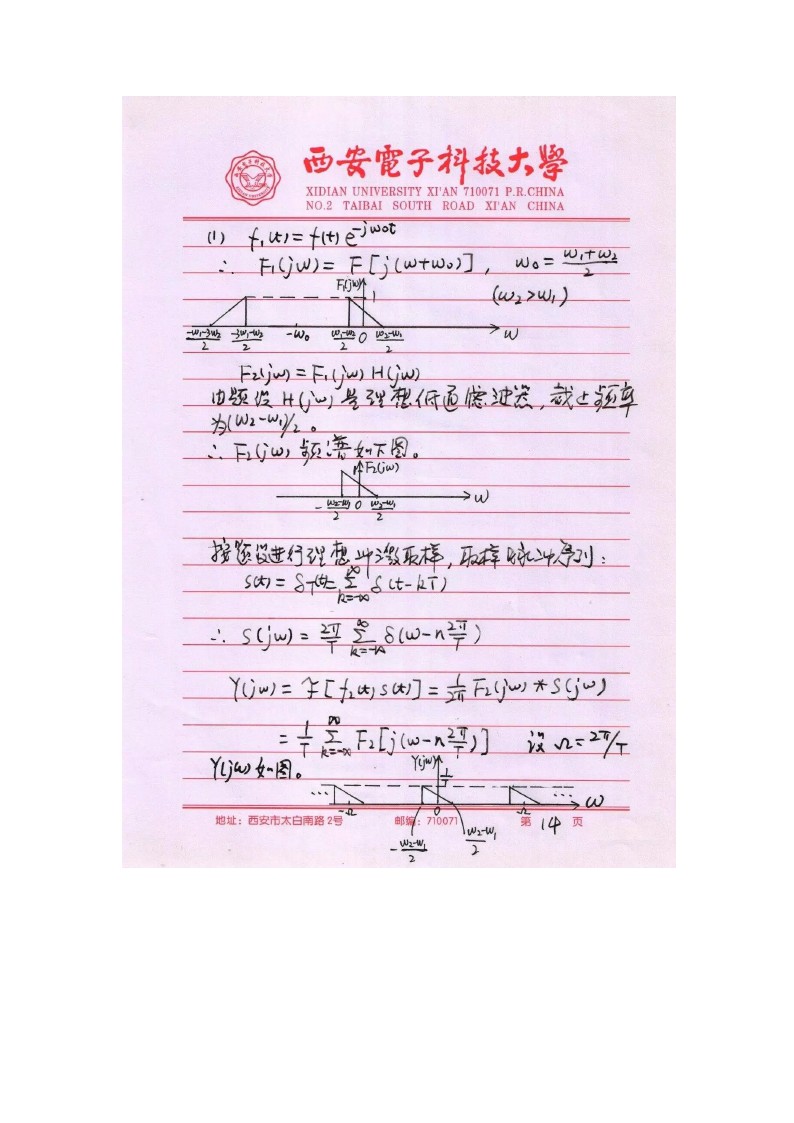 西安電子科技大學
XIDIAN UNIVERSITY XI'AN 710071 P.R.CHINA
NO.2 TAIBAI SOUTH ROAD XI'AN CHINA
(1) f₁(t)=f(t)e^{-jω0t}
∴ F₁(jω)= F[j(ω+ω₀)], ω₀= (ω₁+ω₂)/2
F₁(jω) 1 (ω₂>ω₁)
(-ω₁-3ω₂)/2 (-3ω₁-ω₂)/2 -ω₀ (ω₁-ω₂)/2 0 (ω₂-ω₁)/2 ω
F₂(jω)=F₁(jω)H(jω)
由题设H(jω)是理想低通滤波器,截止频率
为(ω₂-ω₁)/2。
∴ F₂(jω)频谱如下图。
1 F₂(jω)
-(ω₂-ω₁)/2 0 (ω₂-ω₁)/2 ω
按题设进行理想冲激取样,取样脉冲序列:
s(t)= δ_T(t)= Σ_{k=-∞}^{∞} δ(t-kT)
∴ S(jω)= 2π/T Σ_{k=-∞}^{∞} δ(ω-n2π/T)
Y(jω)= F[f₂(t)s(t)] = 1/2π F₂(jω)*S(jω)
= 1/T Σ_{k=-∞}^{∞} F₂[j(ω-n2π/T)] 设Ω=2π/T
Y(jω)如图。 Y(jω) 1/T
... -Ω 0 Ω ... ω
地址：西安市太白南路2号 邮编：710071 第 14 页
-(ω₂-ω₁)/2 (ω₂-ω₁)/2